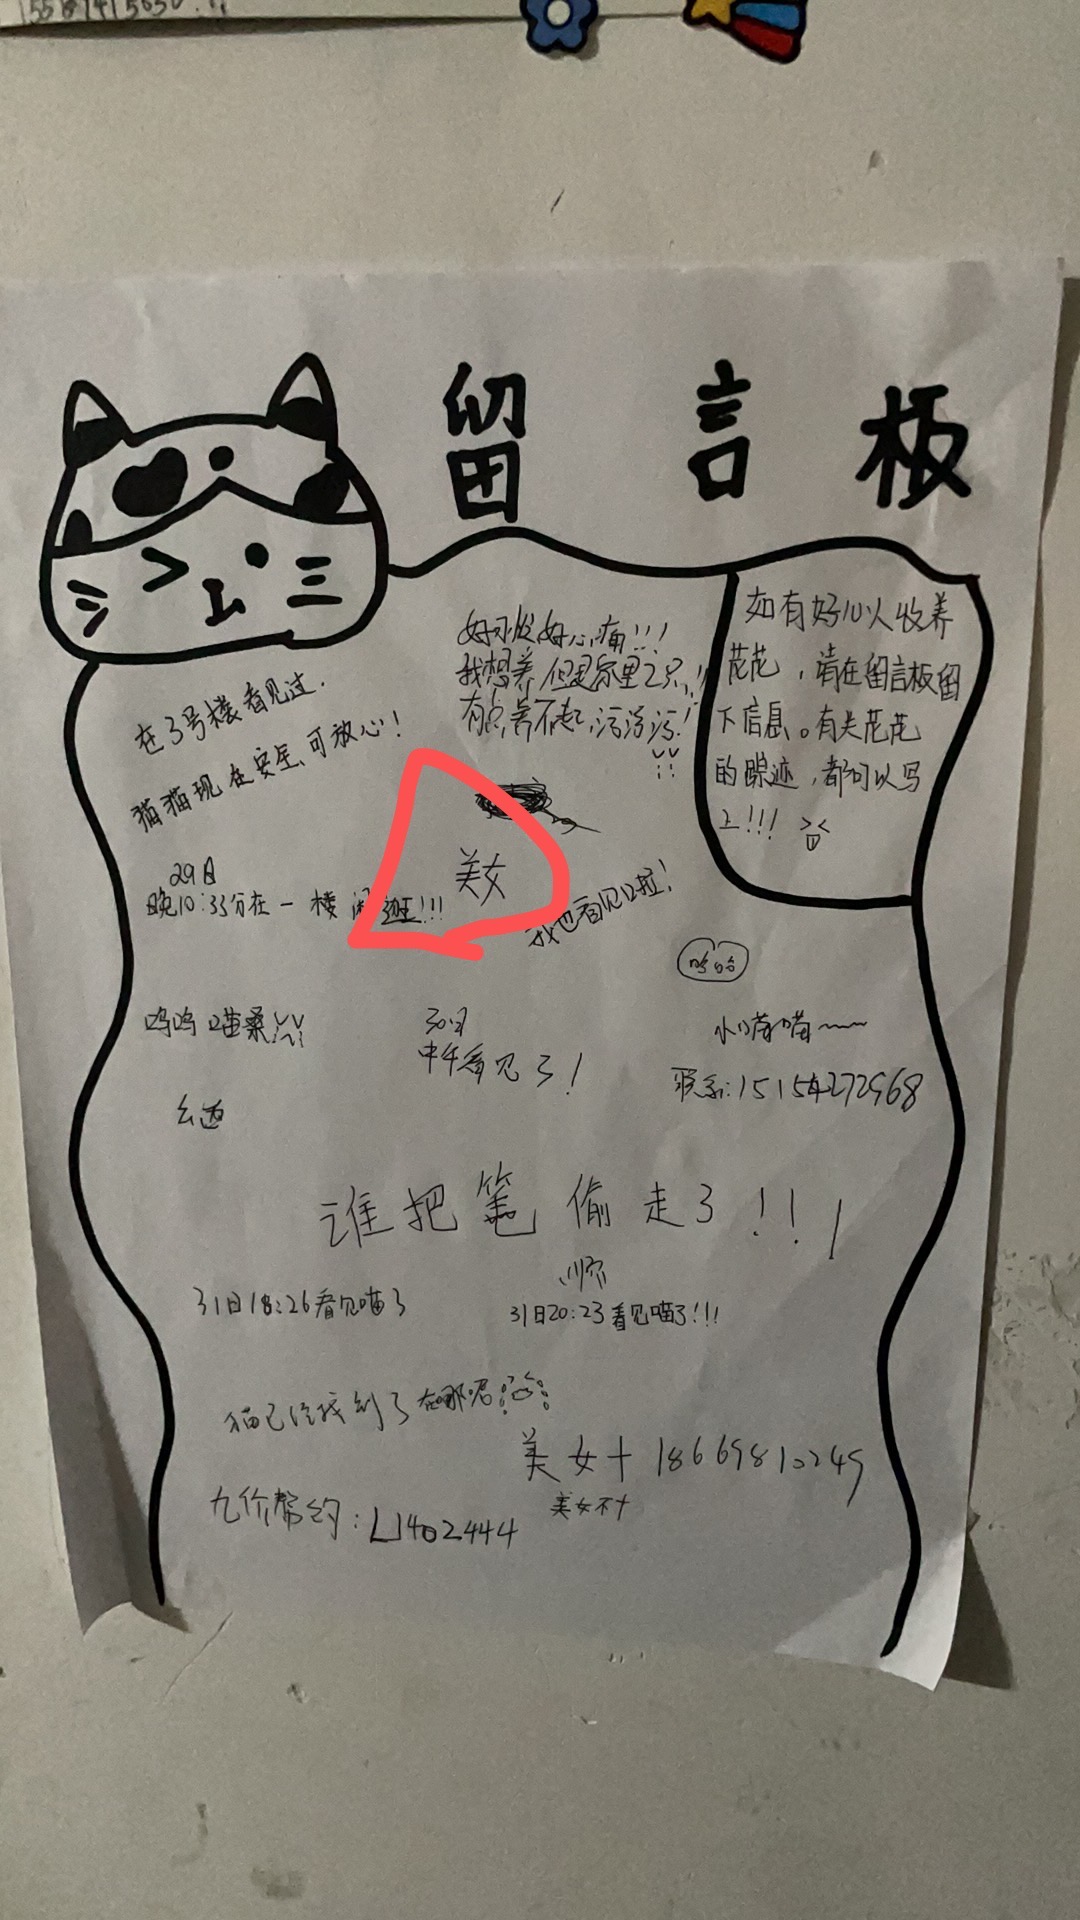 留言板
如有好心人收养
花花，请在留言板留
下信息。有关花花
的踪迹，都可以写
上!!!
好可怜好心痛!!!
我想养但是家里2只
有点养不起,泻泻泻!
在3号楼看见过.
猫猫现在安全,可放心!
美女
29日
晚10:33分在一楼闲逛!!!
我也看见口啦!
哈哈
呜呜喵桑
30日
中午看见了!
小喵喵~~
联系:15154272968
谁把笔偷走了!!!
31日18:26看见喵了
31日20:23看见喵了!!!
猫已经找到了在哪呢
美女十18669810249
美女不十
九价帮约:LJ402444